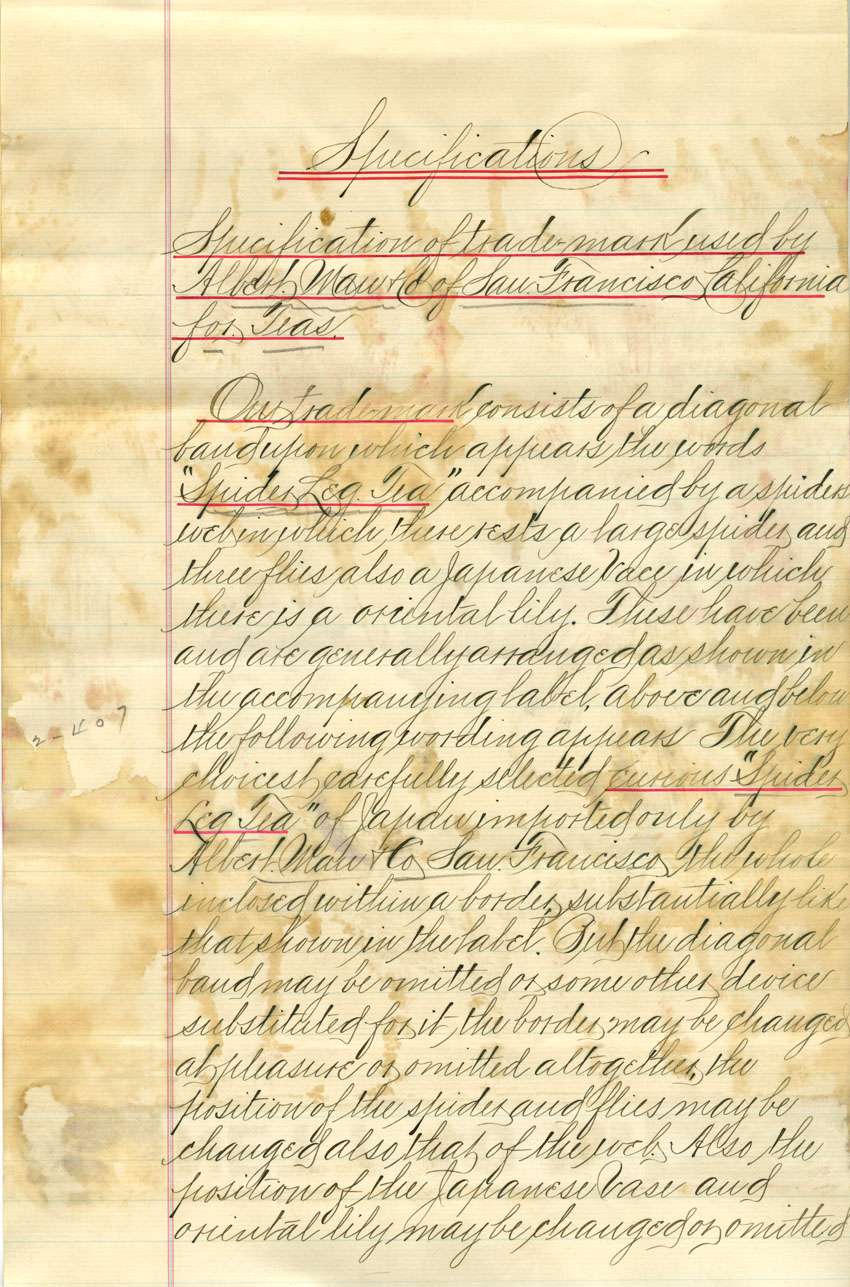 Specifications
Specification of trade-mark used by
Albert Maw & Co of San Francisco California
for Teas.
Our trade-mark consists of a diagonal
band upon which appears the words
"Spider Leg Tea" accompanied by a spiders
web in which there rests a large spider and
three flies also a Japanese Vace in which
there is a oriental lily. These have been
and are generally arranged as shown in
the accompanying label, above and below
the following wording appears The very
choicest carefully selected curious "Spider
Leg Tea" of Japan imported only by
Albert Maw & Co San Francisco, the whole
inclosed within a border substantially like
that shown in the label. But the diagonal
band may be omitted or some other device
substituted for it, the border may be changed
at pleasure or omitted altogether, the
position of the spider and flies may be
changed also that of the web. Also the
position of the Japanese Vase and
oriental lily may be changed or omitted
2-407